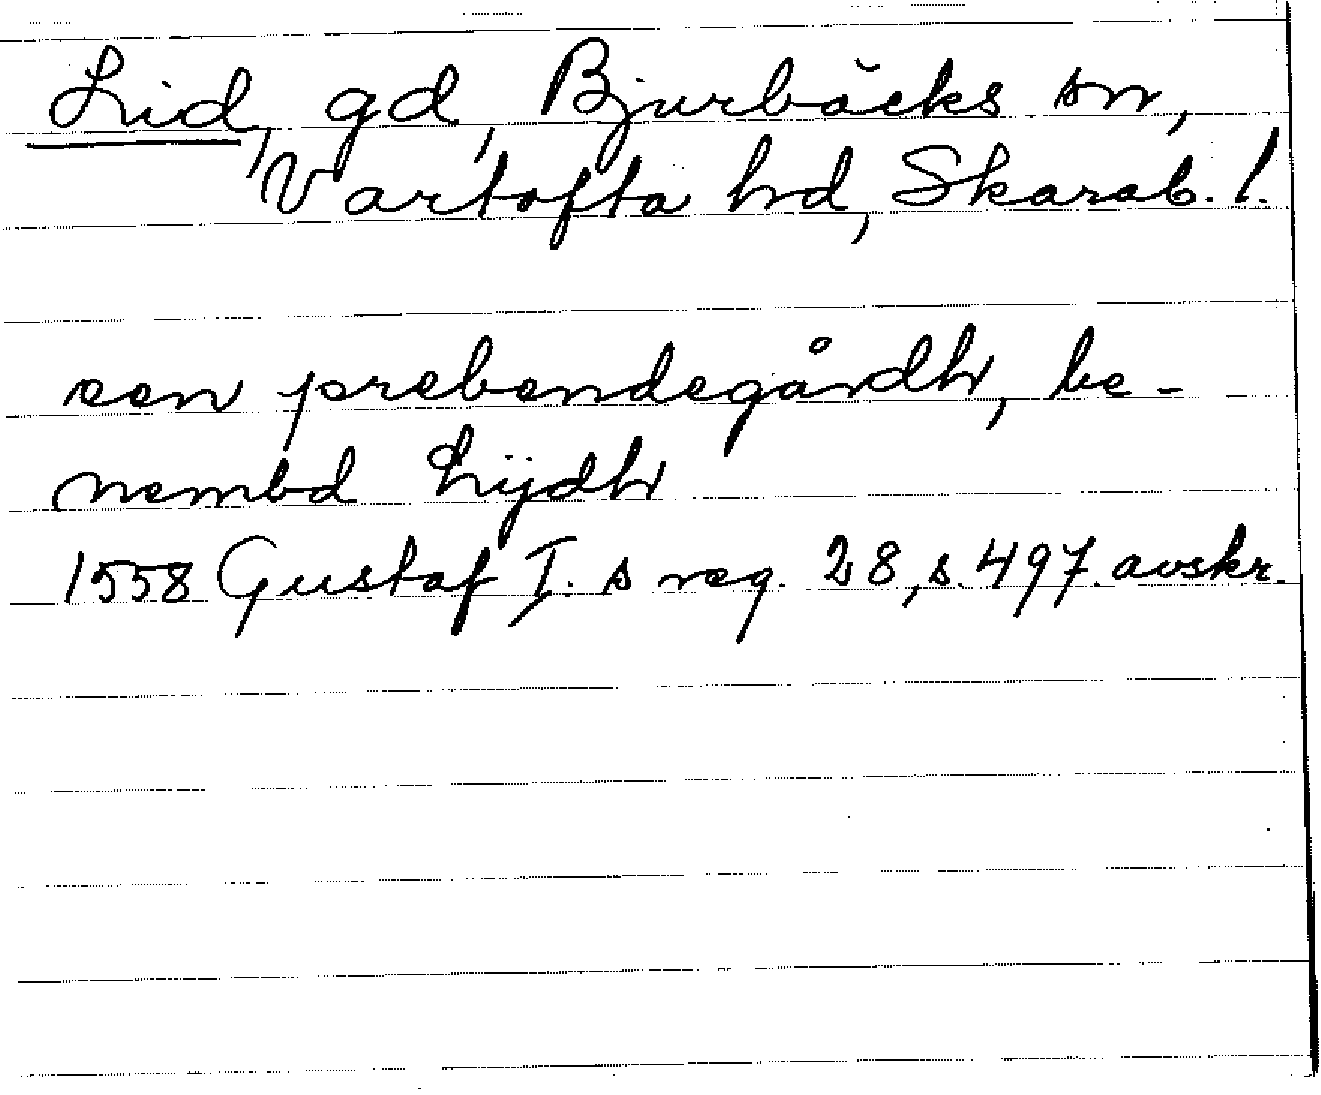 Lid, gd, Bjurbäcks sn,
Vartofta hd, Skarab. l.
een prebendegårdh, be-
nembd Lijdh
1558 Gustaf I. s reg. 28, s. 497. avskr.